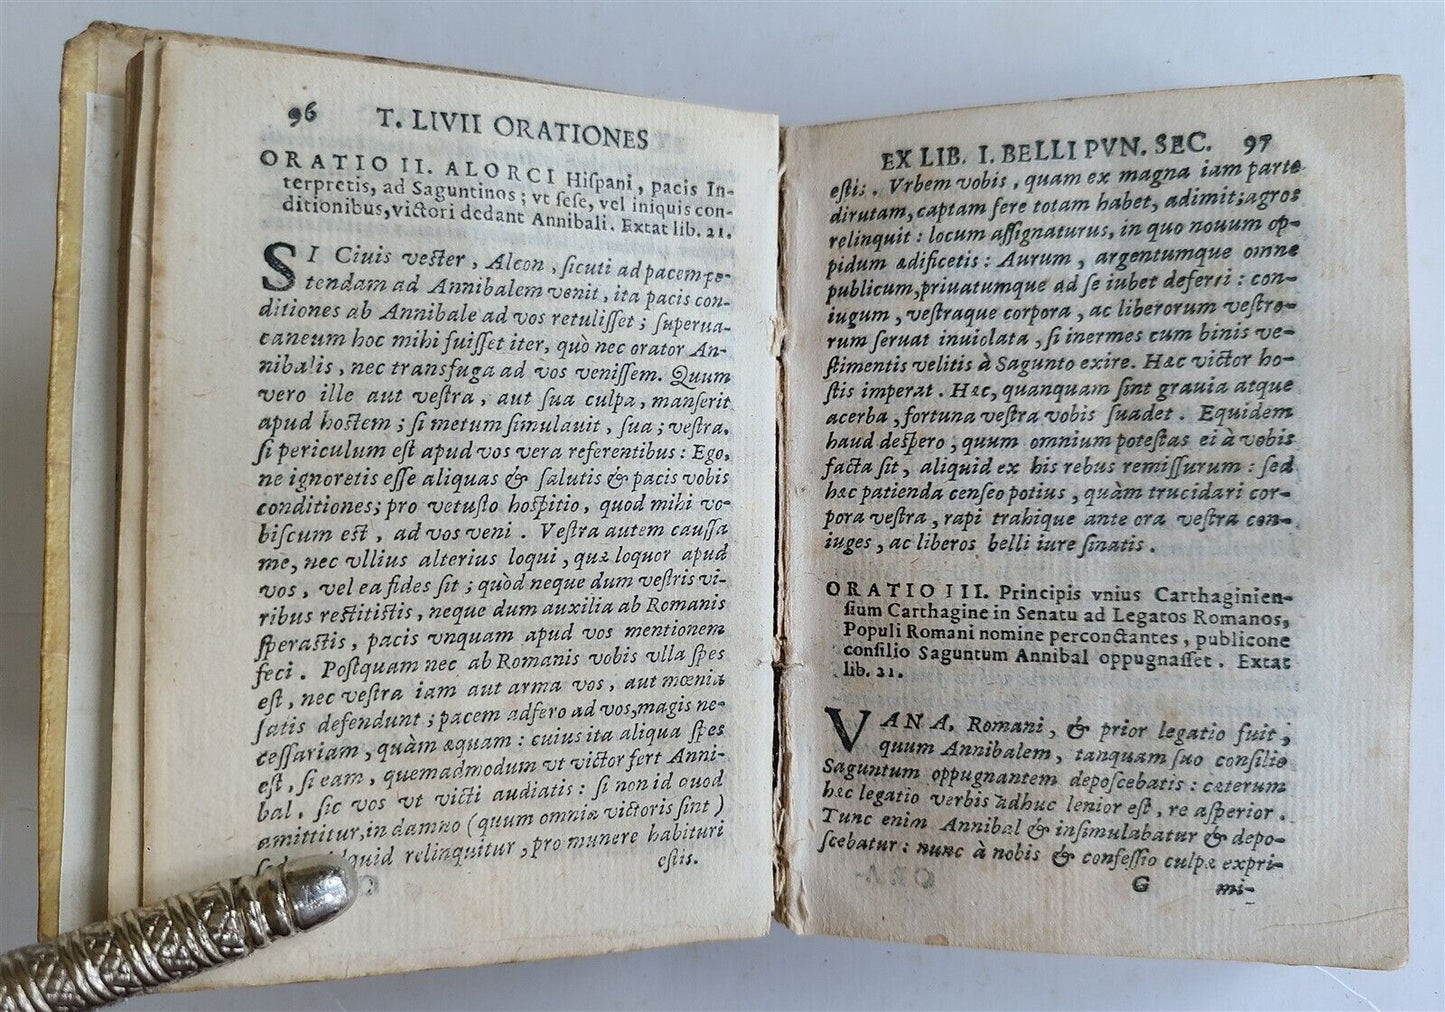 96 T. LIVII ORATIONES
ORATIO II. ALORCI Hiſpani, pacis In-
terpretis, ad Saguntinos; vt ſeſe, vel iniquis con-
ditionibus, victori dedant Annibali. Extat lib. 21.
SI Ciuis veſter, Alcon, ſicuti ad pacem pe-
tendam ad Annibalem venit, ita pacis con-
ditiones ab Annibale ad vos retuliſſet; ſuperua-
caneum hoc mihi fuiſſet iter, quò nec orator An-
nibalis, nec transfuga ad vos veniſſem. Quum
vero ille aut veſtra, aut ſua culpa, manſerit
apud hoſtem; ſi metum ſimulauit, ſua; veſtra,
ſi periculum eſt apud vos vera referentibus: Ego,
ne ignoretis eſſe aliquas & ſalutis & pacis vobis
conditiones; pro vetuſto hoſpitio, quod mihi vo-
biſcum eſt, ad vos veni. Veſtra autem cauſſa
me, nec vllius alterius loqui, quæ loquor apud
vos, vel ea fides ſit; quòd neque dum veſtris vi-
ribus reſtitiſtis, neque dum auxilia ab Romanis
ſperaſtis, pacis vnquam apud vos mentionem
feci. Poſtquam nec ab Romanis vobis vlla ſpes
eſt, nec veſtra iam aut arma vos, aut mœnia
ſatis defendunt; pacem adfero ad vos, magis ne-
ceſſariam, quàm æquam: cuius ita aliqua ſpes
eſt, ſi eam, quemadmodum vt victor fert Anni-
bal, ſic vos vt victi audiatis: ſi non id quod
amittitur, in damno (quum omnia victoris ſint)
relinquitur, pro munere habituri
eſtis.
EX LIB. I. BELLI PVN. SEC. 97
eſtis. Vrbem vobis, quam ex magna iam parte
dirutam, captam fere totam habet, adimit; agros
relinquit: locum aſſignaturus, in quo nouum op-
pidum ædificetis: Aurum, argentumque omne
publicum, priuatumque ad ſe iubet deferri: con-
iugum, veſtraque corpora, ac liberorum veſtro-
rum ſeruat inuiolata, ſi inermes cum binis ve-
ſtimentis velitis à Sagunto exire. Hæc victor ho-
ſtis imperat. Hæc, quanquam ſint grauia atque
acerba, fortuna veſtra vobis ſuadet. Equidem
haud deſpero, quum omnium poteſtas ei à vobis
facta ſit, aliquid ex his rebus remiſſurum: ſed
hæc patienda cenſeo potius, quàm trucidari cor-
pora veſtra, rapi trahique ante ora veſtra con-
iuges, ac liberos belli iure ſinatis.
ORATIO III. Principis vnius Carthaginien-
ſium Carthagine in Senatu ad Legatos Romanos,
Populi Romani nomine perconctantes, publicone
conſilio Saguntum Annibal oppugnaſſet. Extat
lib. 21.
VANA, Romani, & prior legatio fuit;
quum Annibalem, tanquam ſuo conſilio
Saguntum oppugnantem depoſcebatis: cæterum
hæc legatio verbis adhuc lenior eſt, re aſperior.
Tunc enim Annibal & inſimulabatur & depo-
ſcebatur: nunc à nobis & confeſſio culpæ expri-
G mi-